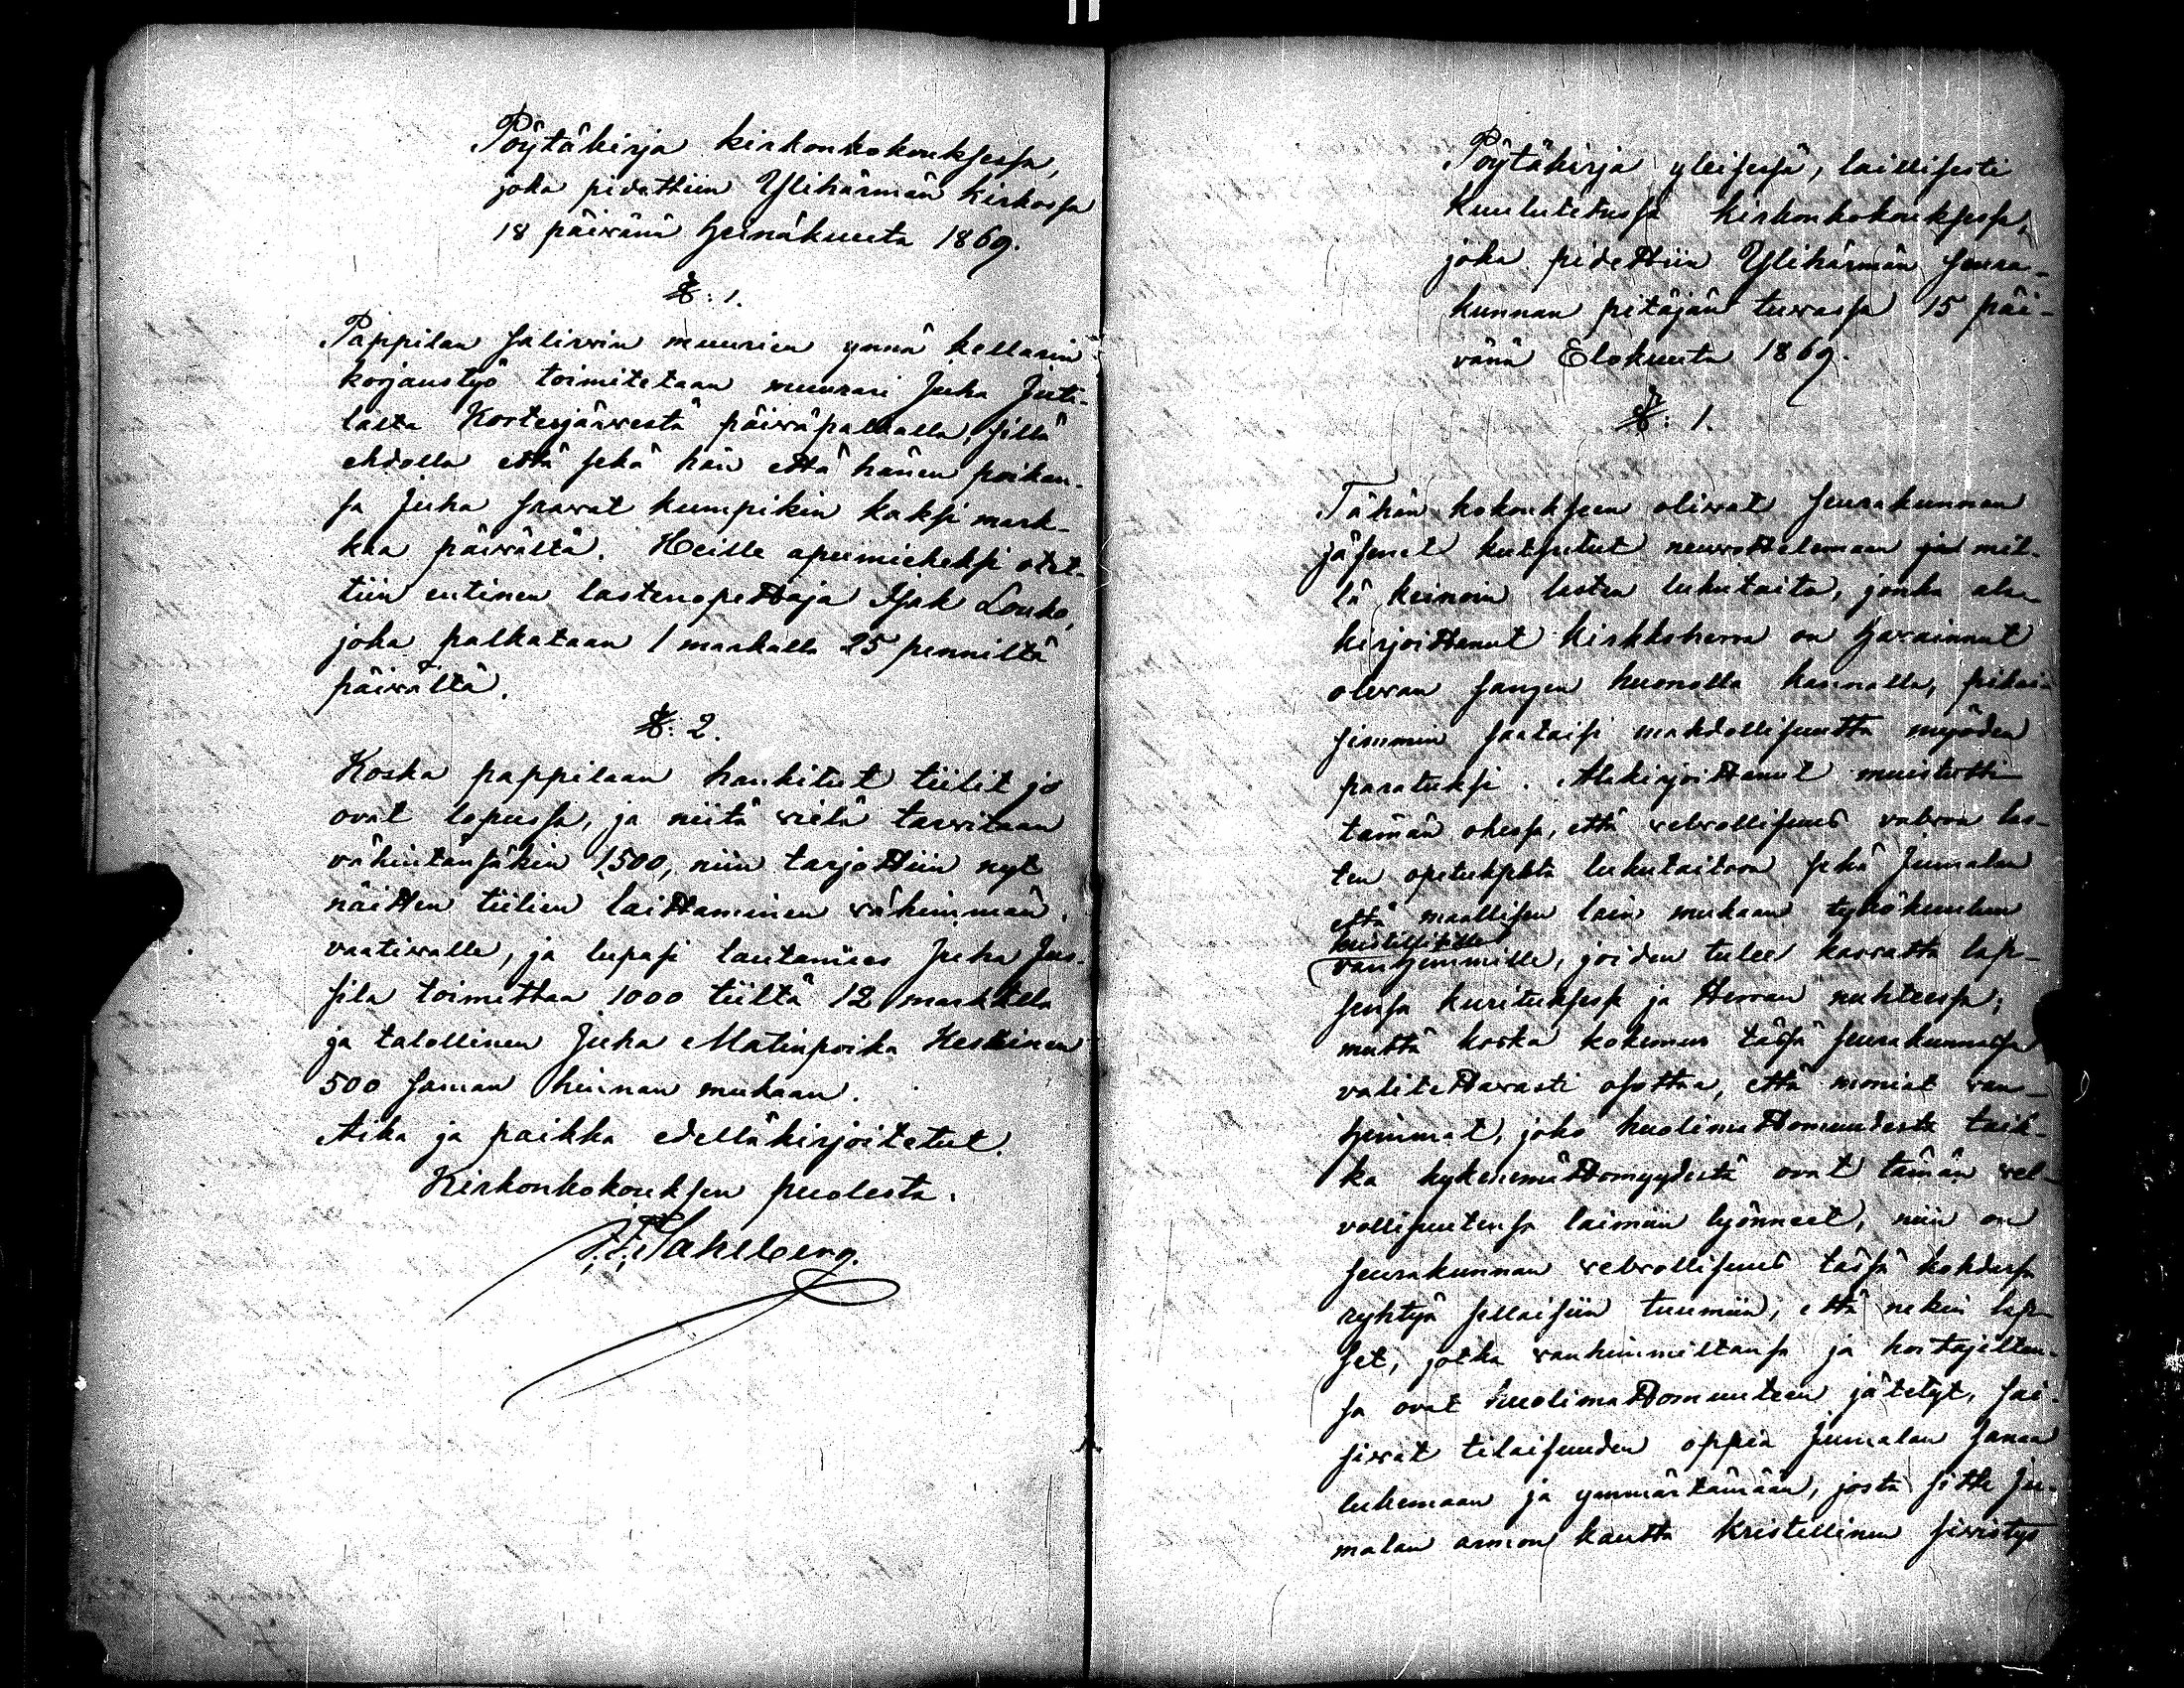 Pöytäkirja kirkonkokouksessa,
joka pidettiin Ylihärmän kirkossa
18 päivänä Heinäkuuta 1869.
§: 1.
Pappilan salirvin muurien ynnä kellarin
korjaustyö toimitetaan muurari Juha Juti-
lalta Kortesjärvestä päiväpalkalla, sillä
ehdolla että sekä hän että hänen poikan-
sa Juha saavat kumpikin kaksi mark-
kaa päivältä. Heille apumieheksi otet-
tiin entinen lastenopettaja Isak Louko,
joka palkataan 1 markalla 25 penniltä
päivältä.
§: 2.
Koska pappilaan hankitut tiilit jo
ovat lopussa, ja niitä vielä tarvitaan
vähintänsäkin 1,500, niin tarjottiin nyt
näitten tiilien laittaminen vähimmän
vaativalle, ja lupasi lautamies Juha Jus-
sila toimittaa 1000 tiiltä 12 markalla
ja talollinen Juha Matinpoika Keskinen
500 saman hinnan mukaan.
Aika ja paikka edelläkirjoitetut.
Kirkonkokouksen puolesta.
Sahlberg.
Pöytäkirja yleisessä, laillisesti
kuulutetussa kirkonkokouksessa,
joka pidettiin Ylihärmän seura-
kunnan pitäjän tuvassa 15 päi-
vänä Elokuuta 1869.
§: 1.
Tähän kokoukseen olivat seurakunnan
jäsenet kutsutut neuvottelemaan mil-
lä keinoin lasten lukutaito, jonka ala-
kirjoittanut kirkkoherra on havainnut
olevan sangen huonolla kannalla, pikai-
simmin saataisi mahdollisuutta myöden
paratuksi. Alakirjoittanut muistutti
tämän ohessa, että velvollisuus valvoa las-
ten opetuksesta lukutaitoon sekä Jumalan
että maallisen lain mukaan tykökuuluu
kristillisille
vanhemmille, joiden tulee kasvattaa lap-
sensa kurituksessa ja Herran nuhteessa;
mutta koska kokemus tässä seurakunnassa
valitettavasti osottaa, että moniat van-
hemmat, joko huolimattomuudesta taik-
ka kykenemättömyydestä ovat tämän vel-
vollisuutensa laimiin lyönneet, niin on
seurakunnan velvollisuus tässä kohdassa
ryhtyä sellaisiin tuumiin, että nekin lap-
set, jotka vanhimmiltansa ja hoitajilten-
sa ovat huolimattomuuteen jätetyt, sai-
sivat tilaisuuden oppia Jumalan sanaa
lukemaan ja ymmärtämään, josta sitte Ju-
malan armon kautta kristillinen sivistys